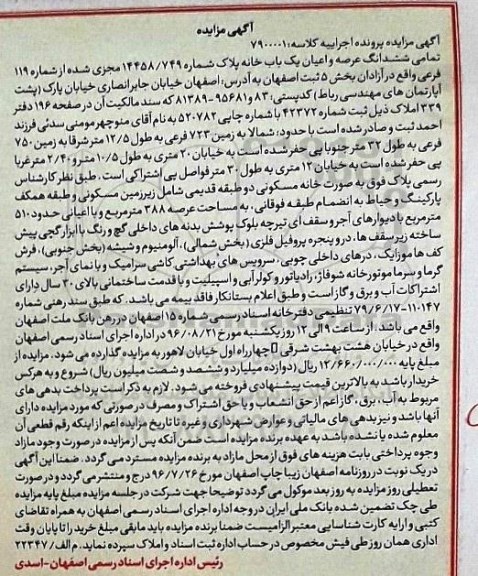 آگهی مزایده
آگهی مزایده پرونده اجراییه کلاسه: ۷۹۰۰۰۰۱
تمامی ششدانگ عرصه و اعیان یک باب خانه پلاک شماره ۱۴۴۵۸/۷۴۹ مجزی شده از شماره ۱۱۹
فرعی واقع در آزادان بخش ۵ ثبت اصفهان به آدرس: اصفهان خیابان جابرانصاری خیابان پارک (پشت
آپارتمان های مهندسی رباط) کدپستی: ۸۳ و ۹۵۶۸۱-۸۱۳۸۹ که سند مالکیت آن در صفحه ۱۹۶ دفتر
۳۳۹ املاک ذیل ثبت شماره ۴۲۳۷۲ با شماره چاپی ۵۲۰۷۸۲ به نام آقای منوچهر مومنی سدئی فرزند
احمد ثبت و صادر شده است با حدود: شمالا به زمین ۷۲۳ فرعی به طول ۱۲/۵ متر شرقا به زمین ۷۵۰
فرعی به طول ۳۲ متر جنوبا پی حفر شده است به خیابان ۲۰ متری به طول ۱۰/۵ متر و ۲/۴۰ متر غربا
پی حفر شده است به خیابان ۱۲ متری به طول ۳۰ متر فواصل پی اشتراکی است. طبق نظر کارشناس
رسمی پلاک فوق به صورت خانه مسکونی دو طبقه قدیمی شامل زیرزمین مسکونی و طبقه همکف
پارکینگ و حیاط به انضمام طبقه فوقانی، به مساحت عرصه ۳۸۸ مترمربع و با اعیانی حدود ۵۱۰
مترمربع با دیوارهای آجر و سقف آی تیرچه بلوک پوشش بدنه های داخلی گچ و رنگ با ابزار گچی پیش
ساخته زیر سقف ها، در و پنجره پروفیل فلزی (بخش شمالی)، آلومنیوم و شیشه (بخش جنوبی)، فرش
کف ها موزاییک، درهای داخلی چوبی، سرویس های بهداشتی کاشی سرامیک و با نمای آجر، سیستم
گرما و سرما موتورخانه شوفاژ، رادیاتور و کولر آبی و اسپیلیت و با قدمت ساختمانی بالای ۳۰ سال دارای
اشتراکات آب و برق و گاز است و طبق اعلام بستانکار فاقد بیمه می باشد. که طبق سند رهنی شماره
۱۱۰۱۴۷-۷۹/۶/۱۷ تنظیمی دفترخانه اسناد رسمی شماره ۱۵ اصفهان در رهن بانک ملت اصفهان
واقع می باشد. از ساعت ۹ الی ۱۲ روز یکشنبه مورخ ۹۶/۰۸/۲۱ در اداره اجرای اسناد رسمی اصفهان
واقع در خیابان هشت بهشت شرقی چهارراه اول خیابان لاهور به مزایده گذارده می شود. مزایده از
مبلغ پایه ۱۲/۶۶۰/۰۰۰/۰۰۰ ریال (دوازده میلیارد و ششصد و شصت میلیون ریال) شروع و به هرکس
خریدار باشد به بالاترین قیمت پیشنهادی فروخته می شود. لازم به ذکر است پرداخت بدهی های
مربوط به آب، برق، گاز اعم از حق انشعاب و یا حق اشتراک و مصرف در صورتی که مورد مزایده دارای
آنها باشد و نیز بدهی های مالیاتی و عوارض شهرداری و غیره تا تاریخ مزایده اعم از اینکه رقم قطعی آن
معلوم شده یا نشده باشد به عهده برنده مزایده است ضمن آنکه پس از مزایده در صورت وجود مازاد
وجوه پرداختی بابت هزینه های فوق از محل مازاد به برنده مزایده مسترد می گردد. ضمنا این آگهی
در یک نوبت در روزنامه اصفهان زیبا چاپ اصفهان مورخ ۹۶/۷/۲۶ درج و منتشر می گردد و در صورت
تعطیلی روز مزایده به روز بعد موکول می گردد توضیحا جهت شرکت در جلسه مزایده مبلغ پایه مزایده
طی چک تضمین شده بانک ملی ایران در وجه اداره اجرای اسناد رسمی اصفهان به همراه تقاضای
کتبی و ارایه کارت شناسایی معتبر الزامیست ضمنا برنده مزایده باید مابقی مبلغ خرید را تا پایان وقت
اداری همان روز طی فیش مخصوص در حساب اداره ثبت اسناد و املاک سپرده نماید. م الف/ ۲۲۳۴۷
رئیس اداره اجرای اسناد رسمی اصفهان-اسدی